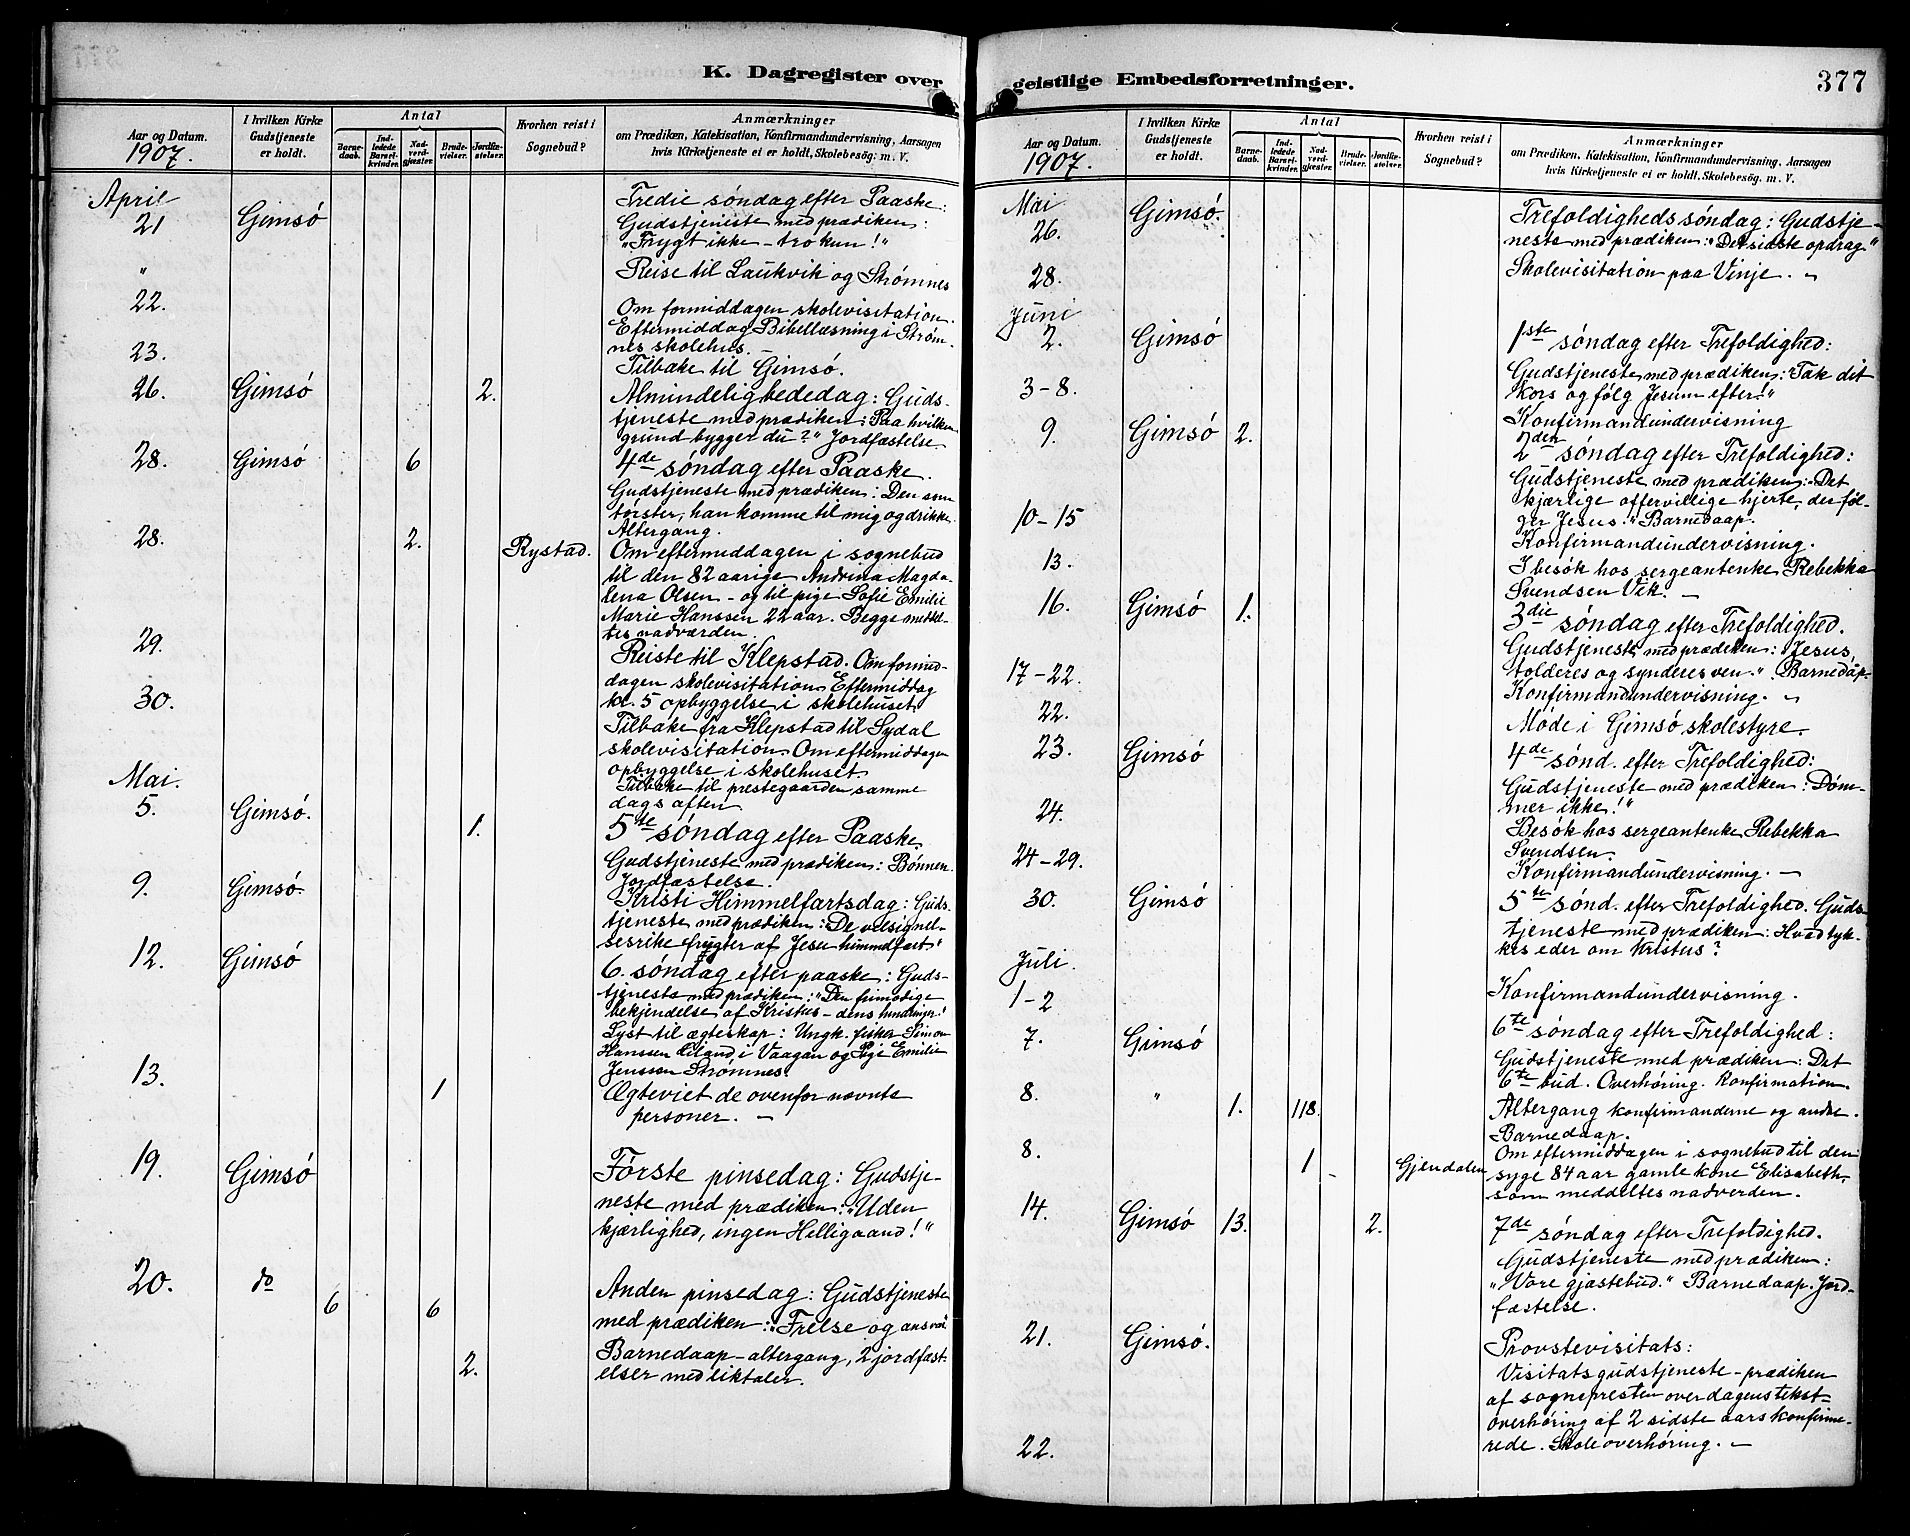 K. Dagregister over
Aar og Datum.
1907.
I hvilken Kirke
Gudstjeneste
er holdt.
Antal
Barne-
daab.
Ind-
ledede
Barsel-
kvinder.
Nad-
verd-
gjester.
Brude-
vielser.
Jordfæ-
stelser.
Hvorhen reist i
Sognebud?
Anmærkninger
om Prædiken, Katekisation, Konfirmandundervisning, Aarsagen
hvis Kirketjeneste ei er holdt, Skolebesøg m. V.
April
21 Gimsö Tredie søndag efter Paaske:
Gudstjeneste med prædiken:
"Frygt ikke - tro kun!"
" Reise til Laukvik og Strømnes
22. Om formiddagen skolevisitation.
Eftermiddag Bibellæsning i Strøm-
nes skolehus.
23. Tilbake til Gimsö.
26. Gimsö 2. Almindelig bededag: Guds-
tjeneste med prædiken: Paa hvilken
grund bygger du?" Jordfæstelse.
28. Gimsö 6 4de søndag efter Paaske.
Gudstjeneste med prædiken: Den som
törster, han komme til mig og drikke.
Altergang.
28. 2. Rystad. Om eftermiddagen i sognebud
til den 82 aarige Andrina Magda-
lena Olsen - og til pige Sofie Emilie
Marie Hanssen 22 aar. Begge meddel-
tes nadværden.
29. Reiste til Klepstad. Om formid-
dagen skolevisitation. Eftermiddag
kl. 5 opbyggelse i skolehuset
30. Tilbake fra Klepstad til Sydal
skolevisitation. Om eftermiddagen
opbyggelse i skolehuset.
Tilbake til prestegaarden samme
dags aften
Mai.
5. Gimsö. 1. 5te søndag efter Paaske.
Gudstjeneste med prædiken: Bønnen.
Jordfæstelse.
9. Gimsö. Kristi Himmelfartsdag: Guds-
tjeneste med prædiken: De velsignel-
sesrike frugter af Jesu himmelfart"
12. Gimsö 6. söndag efter paaske: Guds-
tjeneste med prædiken: "Den frimodige
bekjendelse af Kristus - dens hindringer!
Lyst til ægteskap: Ungk. fisker Simon
Hanssen i Vaagan og Pige Emilie
Jenssen Strømnes.
13. 1 Ægteviet de ovenfor nævnte
personer. -
19. Gimsö Förste pinsedag: Gudstje-
neste med prædiken: "Uden
kjærlighed, ingen Helligaand!"
20. do 6 6 2. Anden pinsedag: Gudstjeneste
med prædiken: "Frelse og ansvar
Barnedaap - altergang, 2 jordfæst-
elser med liktaler.
geistlige Embedsforretninger.
377
Aar og Datum.
1907.
I hvilken Kirke
Gudstjeneste
er holdt.
Antal
Barne-
daab.
Ind-
ledede
Barsel-
kvinder.
Nad-
verd-
gjester.
Brude-
vielser.
Jordfæ-
stelser.
Hvorhen reist i
Sognebud?
Anmærkninger
om Prædiken, Katekisation, Konfirmandundervisning, Aarsagen
hvis Kirketjeneste ei er holdt, Skolebesøg. m. V.
Mai
26. Gimsö. Trefoldigheds söndag: Gudstje-
neste med prædiken: "Det sidste opdrag"
28. Skolevisitation paa Vinje. -
Juni
2. Gimsö 1ste søndag efter Trefoldighed:
Gudstjeneste med prædiken: "Tak dit
Kors og følg Jesum efter!"
3-8. Konfirmandundervisning
9. Gimsö 2. 2den søndag efter Trefoldighed:
Gudstjeneste med prædiken: Det
kjærlige offervillige hjerte, der föl-
ger Jesus." Barnedaap.
10-15 Konfirmandundervisning.
13. I besök hos sergeantenke Rebekka
Svendsen Vik. -
16. Gimsö 1. 3die søndag efter Trefoldighed.
Gudstjeneste med prædiken: Jesus,
tolderes og synderes ven." Barnedaap-
17-22. Konfirmandundervisning. -
22. Møde i Gimsö skolestyre.
23. Gimsö 4de sønd. efter Trefoldighed:
Gudstjeneste med prædiken: Døm-
mer ikke!"
24. Besök hos sergeantenke Rebekka
Svendsen.
24-29. Konfirmandundervisning. -
30. Gimsö 5te sønd. efter Trefoldighed. Guds-
tjeneste med prædiken: Hvad tyk-
kes eder om Kristus?
Juli.
1-2 Konfirmandundervisning.
7. Gimsö 6te søndag efter Trefoldighed:
Gudstjeneste med prædiken: Det
6te bud. Overhøring. Konfirmation.
8. " 1. 118. Altergang konfirmanderne og andre.
Barnedaap.
8. 1 - Gjendalen Om eftermiddagen i sognebud til den
syge 84 aar gamle kone Elisabeth,
som meddeltes nadverden.
14. Gimsö 13. 2. 7de søndag efter Trefoldighed.
Gudstjeneste med prædiken:
"Vore gjæstebud." Barnedaap. Jord-
fæstelse.
21. Gimsö. Provstevisitats:
Visitats gudstjeneste - prædiken
af sognepresten over dagens tekst-
overhöring af 2 sidste aars konfirme-
22. rede. Skoleoverhøring. -